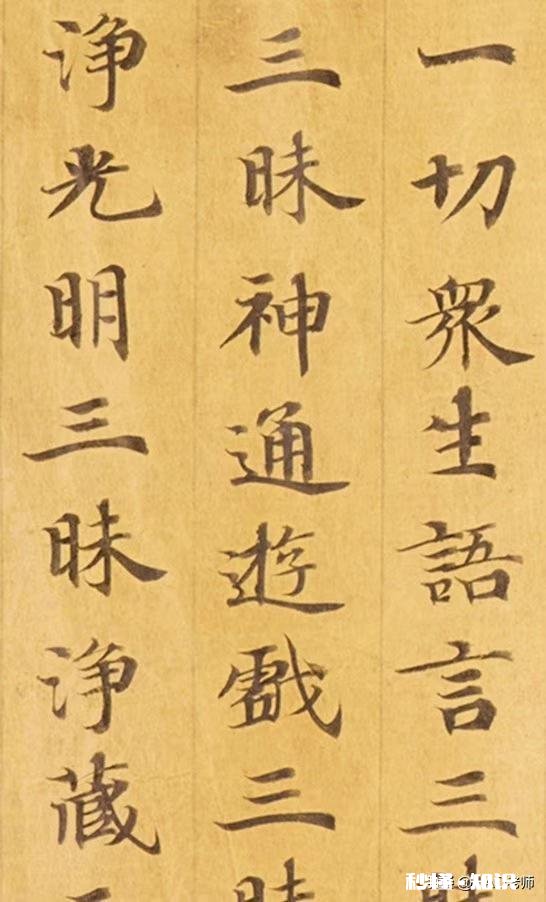 一切衆生語言三
三昧神通遊戲三
浄光明三昧浄藏
秒懂·知识